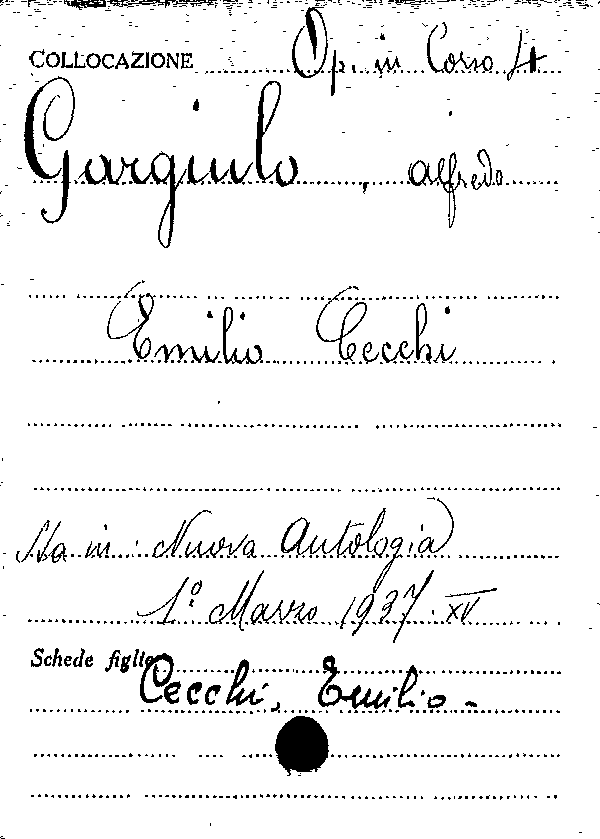 COLLOCAZIONE Op. in Corso 4
Gargiulo, Alfredo
Emilio Cecchi
Sta in: Nuova Antologia
1º Marzo 1937. XV
Schede figlie
Cecchi, Emilio -